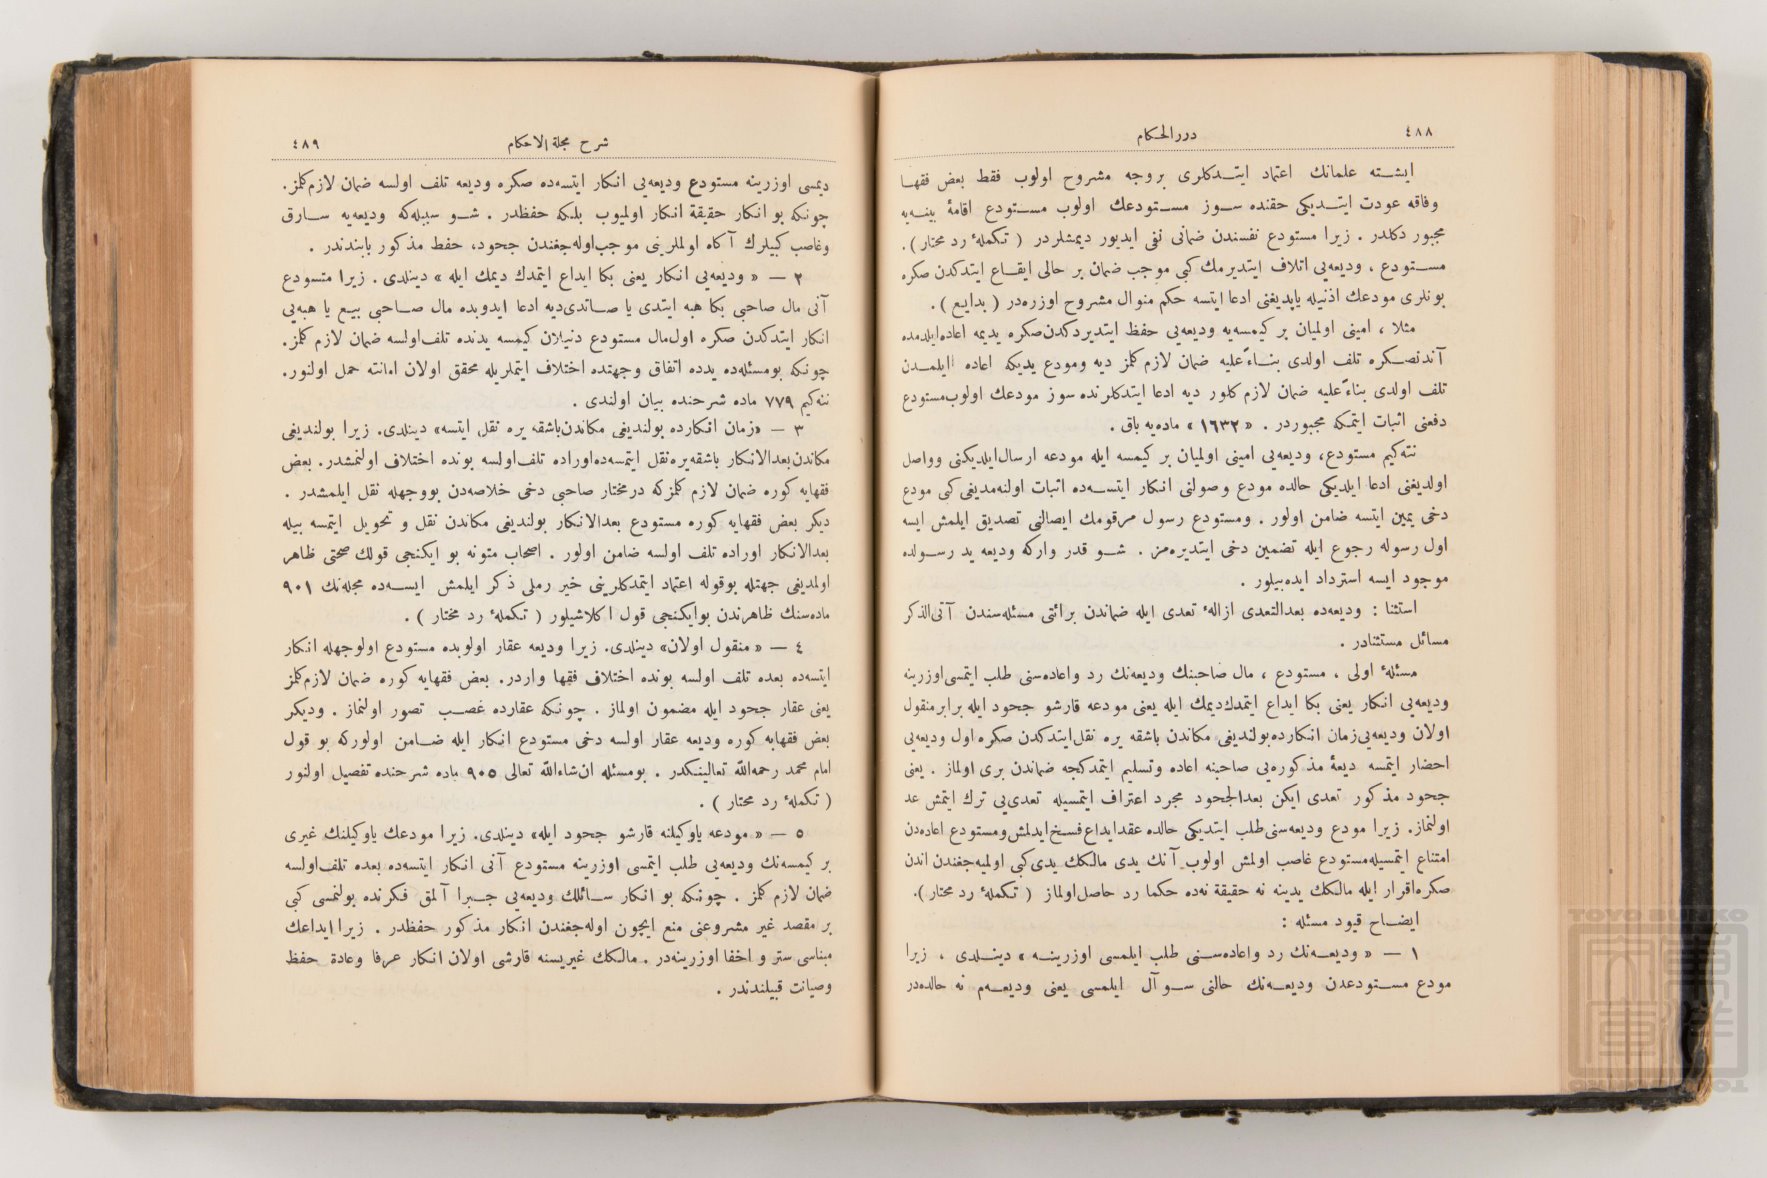 ٤٨٨
دررالحكام
ايشته علمانك اعتماد ايتدكلرى بروجه مشروح اولوب فقط بعض فقها
وفاقه عودت ايتديكى حقنده سوز مستودعك اولوب مستودع اقامهٔ بينه‌يه
مجبور دكلدر . زيرا مستودع نفسندن ضمانى نفى ايديور ديمشلردر ( تكملهٔ رد محتار ) .
مستودع ، وديعه‌يى اتلاف ايتديرمك كبى موجب ضمان بر حالى ايقاع ايتدكدن صكره
بونلرى مودعك اذنيله ياپديغنى ادعا ايتسه حكم منوال مشروح اوزره‌در ( بدايع ) .
مثلا ، امينى اولميان بر كيمسه‌يه وديعه‌يى حفظ ايتديردكدن صكره يديمه اعاده ايلدمده
آندنصكره تلف اولدى بناءً عليه ضمان لازم كلمز ديه ومودع يديكه اعاده ايلمدن
تلف اولدى بناءً عليه ضمان لازم كلور ديه ادعا ايتدكلرنده سوز مودعك اولوب مستودع
دفعنى اثبات ايتمكه مجبوردر . « ١٦٣٢ » ماده‌يه باق .
نته‌كيم مستودع ، وديعه‌يى امينى اولميان بر كيمسه ايله مودعه ارسال ايلديكنى وواصل
اولديغنى ادعا ايلديكى حالده مودع وصولنى انكار ايتسه‌ده اثبات اولنه‌مديغى كبى مودع
دخى يمين ايتسه ضامن اولور . ومستودع رسول مرقومك ايصالنى تصديق ايلمش ايسه
اول رسوله رجوع ايله تضمين دخى ايتديره‌مز . شو قدر واركه وديعه يد رسولده
موجود ايسه استرداد ايده‌بيلور .
استثنا : وديعه‌ده بعدالتعدى ازالهٔ تعدى ايله ضماندن برائتى مسئله‌سندن آتى‌الذكر
مسائل مستثنادر .
مسئلهٔ اولى ، مستودع ، مال صاحبنك وديعه‌نك رد واعاده‌سنى طلب ايتمسى اوزرينه
وديعه‌يى انكار يعنى بكا ايداع ايتمدك ديمك ايله يعنى مودعه قارشو جحود ايله برابر منقول
اولان وديعه‌يى زمان انكارده بولنديغى مكاندن باشقه يره نقل ايتدكدن صكره اول وديعه‌يى
احضار ايتمسه وديعهٔ مذكوره‌يى صاحبنه اعاده وتسليم ايتمدكجه ضماندن برى اولماز . يعنى
جحود مذكور تعدى ايكن بعدالجحود مجرد اعتراف ايتمسيله تعدى‌يى ترك ايتمش عد
اولنماز . زيرا مودع وديعه‌سنى طلب ايتديكى حالده عقد ايداع فسخ ايدلمش ومستودع اعاده‌دن
امتناع ايتمسيله مستودع غاصب اولمش اولوب آنك يدى مالكك يدى كبى اولميه‌جغندن اندن
صكره اقرار ايله مالكك يدينه نه حقيقة نه‌ده حكما رد حاصل اولماز ( تكملهٔ رد محتار ) .
ايضاح قيود مسئله :
١ — « وديعه‌نك رد واعاده‌سنى طلب ايلمسى اوزرينه » دينلدى ، زيرا
مودع مستودعدن وديعه‌نك حالنى سوآل ايلمسى يعنى وديعه‌م نه حالده‌در
شرح مجلةالاحكام
٤٨٩
ديمسى اوزرينه مستودع وديعه‌يى انكار ايتسه‌ده صكره وديعه تلف اولسه ضمان لازم كلمز .
چونكه بو انكار حقيقة انكار اولميوب بلكه حفظدر . شو سببله‌كه وديعه‌يه سارق
وغاصب كبيلرك آگاه اولملرينى موجب اوله‌جغندن جحود ، حفظ مذكور بابندندر .
٢ — « وديعه‌يى انكار يعنى بكا ايداع ايتمدك ديمك ايله » دينلدى . زيرا متسودع
آنى مال صاحبى بكا هبه ايتدى يا صاتدى‌ديه ادعا ايدوبده مال صاحبى بيع يا هبه‌يى
انكار ايتدكدن صكره اول مال مستودع دنيلان كيمسه يدنده تلف اولسه ضمان لازم كلمز .
چونكه بومسئله‌ده يدده اتفاق وجهتده اختلاف ايتملريله محقق اولان امانته حمل اولنور .
نته‌كيم ٧٧٩ ماده شرحنده بيان اولندى .
٣ — « زمان انكارده بولنديغى مكاندن باشقه يره نقل ايتسه » دينلدى . زيرا بولنديغى
مكاندن بعدالانكار باشقه يره نقل ايتمسه‌ده اوراده تلف اولسه بونده اختلاف اولنمشدر . بعض
فقهايه كوره ضمان لازم كلمزكه درمختار صاحبى دخى خلاصه‌دن بووجهله نقل ايلمشدر .
ديكر بعض فقهايه كوره مستودع بعدالانكار بولنديغى مكاندن نقل و تحويل ايتمسه بيله
بعدالانكار اوراده تلف اولسه ضامن اولور . اصحاب متونه بو ايكنجى قولك صحتى ظاهر
اولمديغى جهتله بوقوله اعتماد ايتمدكلرينى خير رملى ذكر ايلمش ايسه‌ده مجله‌نك ٩٠١
ماده‌سنك ظاهرندن بوايكنجى قول اكلاشيلور ( تكملهٔ رد مختار ) .
٤ — « منقول اولان » دينلدى . زيرا وديعه عقار اولوبده مستودع اولوجهله انكار
ايتسه‌ده بعده تلف اولسه بونده اختلاف فقها واردر . بعض فقهايه كوره ضمان لازم كلمز
يعنى عقار جحود ايله مضمون اولماز . چونكه عقارده غصب تصور اولنماز . وديكر
بعض فقهايه كوره وديعه عقار اولسه دخى مستودع انكار ايله ضامن اولوركه بو قول
امام محمد رحمه‌الله تعالينكدر . بومسئله ان‌شاءالله تعالى ٩٠٥ ماده شرحنده تفصيل اولنور
( تكملهٔ رد محتار ) .
٥ — « مودعه ياوكيلنه قارشو جحود ايله » دينلدى . زيرا مودعك ياوكيلنك غيرى
بر كيمسه‌نك وديعه‌يى طلب ايتمسى اوزرينه مستودع آنى انكار ايتسه‌ده بعده تلف اولسه
ضمان لازم كلمز . چونكه بو انكار سائلك وديعه‌يى جبرا آلمق فكرنده بولنمسى كبى
بر مقصد غير مشروعنى منع ايچون اوله‌جغندن انكار مذكور حفظدر . زيرا ايداعك
مبناسى ستر و اخفا اوزرينه‌در . مالكك غيريسنه قارشى اولان انكار عرفا وعادة حفظ
وصيانت قبيلندندر .
TOYO BUNKO